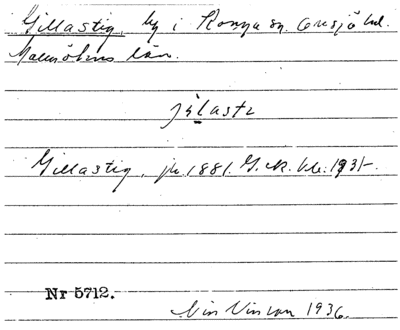 Gillastig, by i Ronga sn. Onsjö hd.
Malmöhus län.
jìlastı
Gillastig, jb. 1881. G. k. bl. 1931.
Nr 5712.
1936.